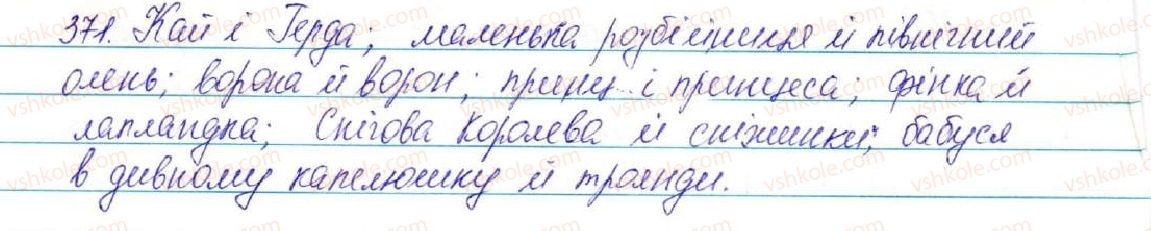 371. Кай і Ґерда; маленька розбійниця й північний
олень; ворона й ворон; принц і принцеса; фінка й
лапландка; Снігова Королева й сніжинки; бабуся
в дивному капелюшку й троянди.